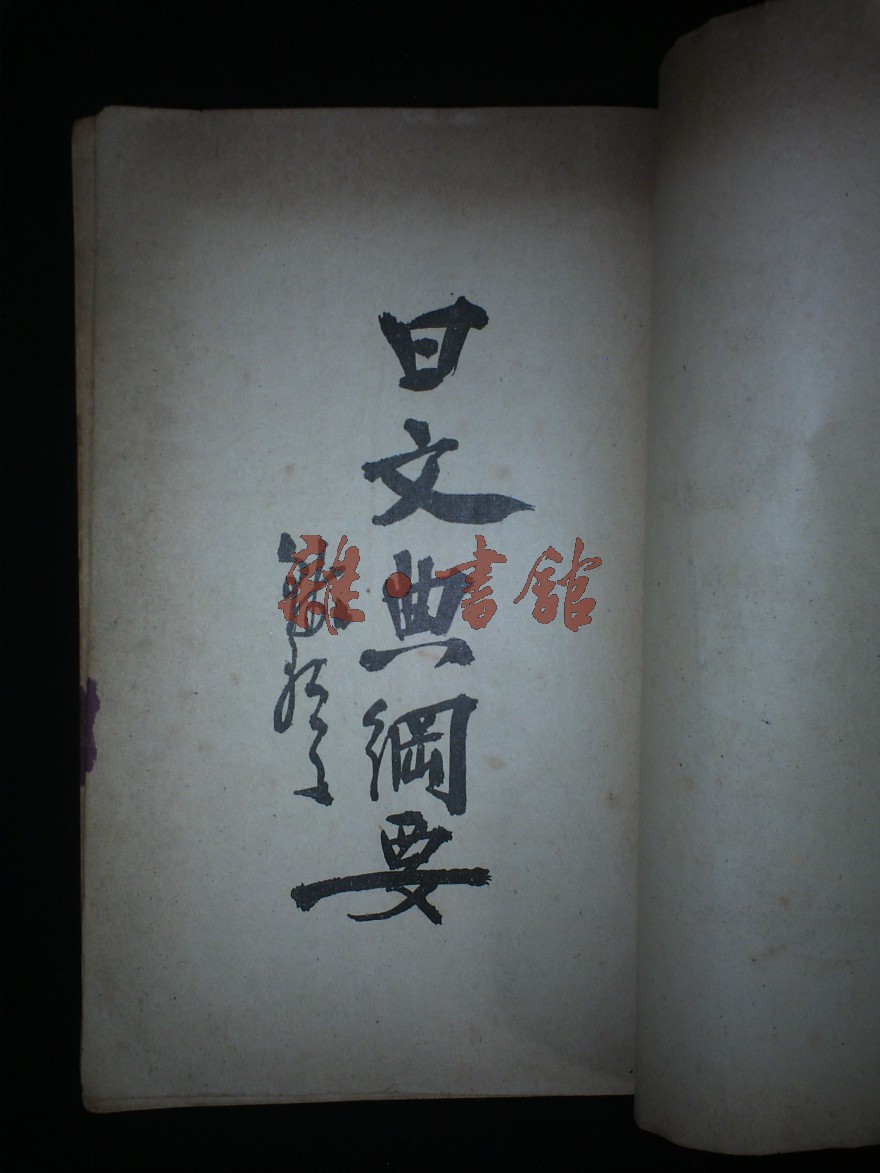 日文典綱要
雜·書館